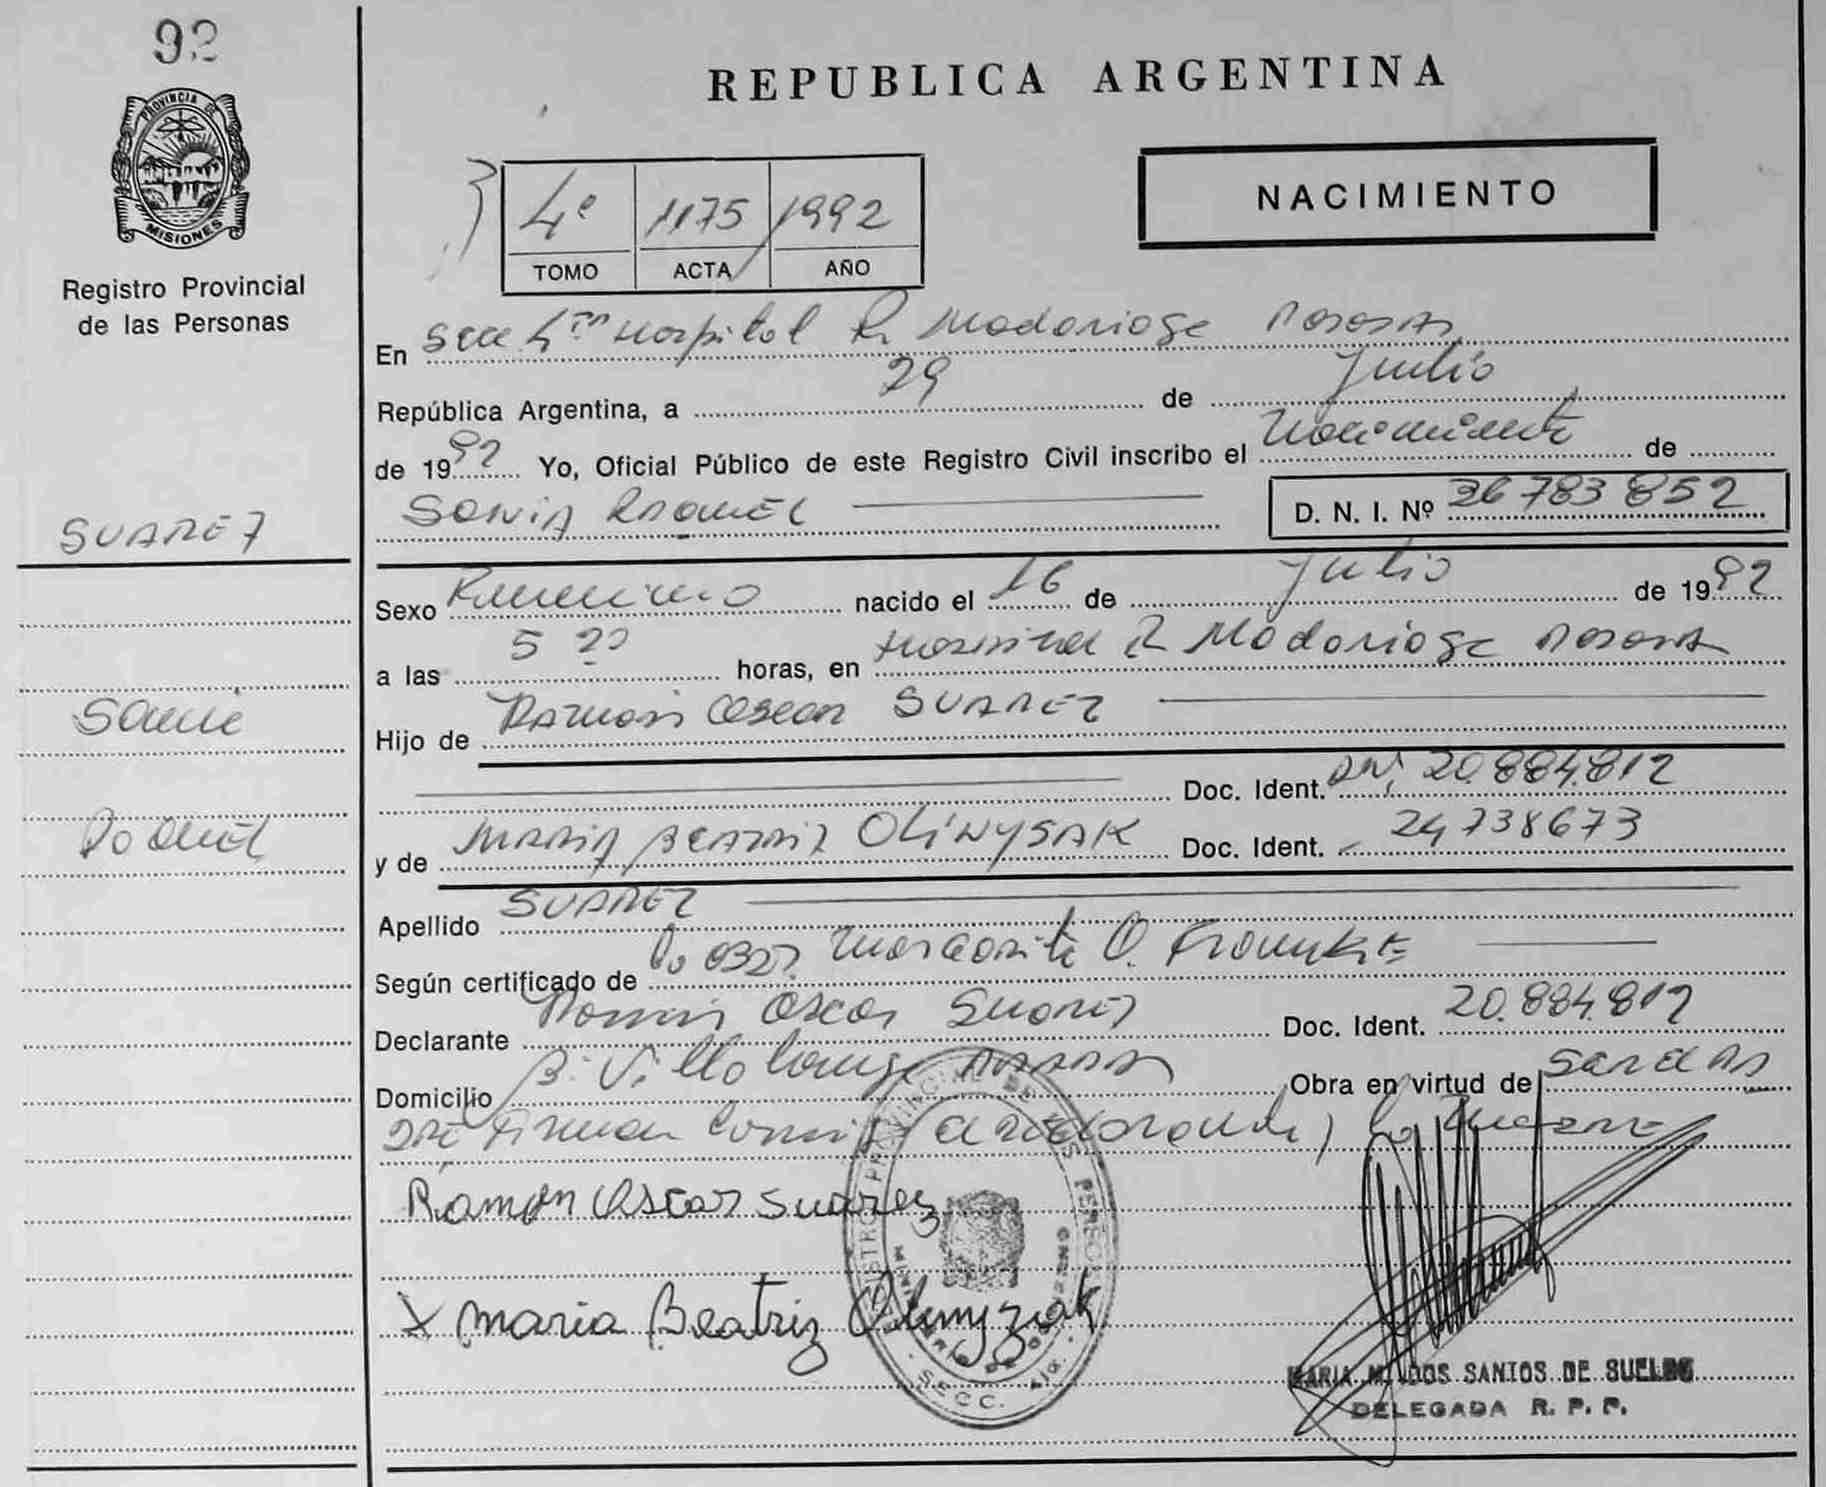 92
PROVINCIA DE
MISIONES
Registro Provincial
de las Personas
REPUBLICA ARGENTINA
NACIMIENTO
4º 1175 1992
TOMO ACTA AÑO
En Secc 4ta Hospital R. Madariaga Posadas
República Argentina, a 29 de Julio
de 1992 Yo, Oficial Público de este Registro Civil inscribo el Nacimiento de
SUAREZ
SONIA RAQUEL D. N. I. Nº 36783852
Sexo Femenino nacido el 16 de Julio de 1992
a las 5 horas, en Hospital R Madariaga Posadas
Sonia
Hijo de Ramón Oscar SUAREZ
Doc. Ident. DNI 20.884.812
Raquel
y de MARIA BEATRIZ OLINYSAK Doc. Ident. 24738673
Apellido SUAREZ
Según certificado de Margarita O.
Declarante Ramón Oscar Suarez Doc. Ident. 20.884.812
Domicilio B. Villa Posadas Obra en virtud de
Ramon Oscar Suarez
X Maria Beatriz
MARIA DOS SANTOS DE
DELEGADA R. P. P.